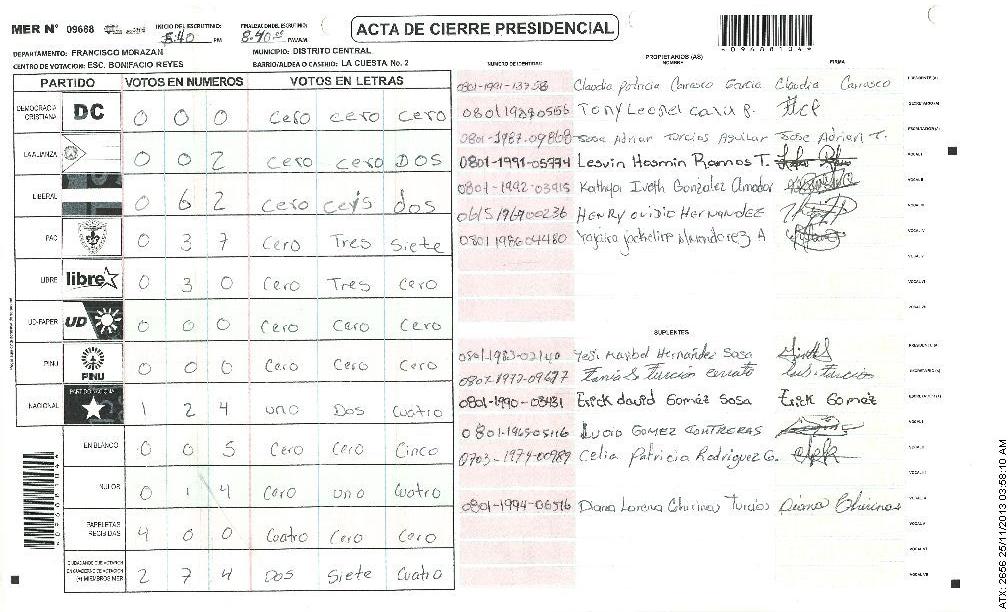 MER N° 09688 INICIO DEL ESCRUTINIO: 5:40 PM FINALIZACION DEL ESCRUTINIO: 8:40 PM/AM
ACTA DE CIERRE PRESIDENCIAL
DEPARTAMENTO: FRANCISCO MORAZAN MUNICIPIO: DISTRITO CENTRAL
CENTRO DE VOTACION: ESC. BONIFACIO REYES BARRIO/ALDEA O CASERIO: LA CUESTA No. 2
PARTIDO VOTOS EN NUMEROS VOTOS EN LETRAS
DEMOCRACIA CRISTIANA DC 0 0 0 cero cero cero
LA ALIANZA 0 0 2 cero cero DOS
LIBERAL 0 6 2 cero ceis dos
PAC 0 3 7 Cero Tres Siete
LIBRE libre 0 3 0 Cero Tres Cero
UD-FAPER UD 0 0 0 Cero Cero Cero
PINU PINU 0 0 0 Cero Cero Cero
NACIONAL 1 2 4 uno Dos Cuatro
EN BLANCO 0 0 5 Cero Cero Cinco
NULOS 0 1 4 Cero uno Cuatro
PAPELETAS RECIBIDAS 4 0 0 Cuatro Cero Cero
CIUDADANOS QUE VOTARON EN CUADERNO DE VOTACION (+) MIEMBROS MER 2 7 4 Dos Siete Cuatro
PROPIETARIOS (AS)
NUMERO DE IDENTIDAD NOMBRE FIRMA
0801-1991-13758 Claudia Patricia Carrasco Garcia Claudia Carrasco PRESIDENTE(A)
Tony Leonel SECRETARIO(A)
0801-1987-09868 Jose Adrian Turcios Aguilar Jose Adrian T. ESCRUTADOR(A)
0801-1991-05974 Lesvin Hosmin Ramos T. VOCAL I
0801-1992-03915 Kathya Iveth Gonzalez Amador VOCAL II
0615196900236 HENRY OVIDIO HERNANDEZ VOCAL III
0801198604480 Yajaira Jackeline A VOCAL IV
VOCAL V
VOCAL VI
VOCAL VII
SUPLENTES
0801-1983-02140 Yesi Maribel Hernandez Sosa PRESIDENTE(A)
0801-1977-09677 Tania S Turcios cerrato SECRETARIO(A)
0801-1990-03431 Erick david Gomez Sosa Erick Gomez ESCRUTADOR(A)
0801-1965-05116 LUCIO GOMEZ CONTRERAS VOCAL I
0703-1974-00989 Celia Patricia Rodriguez G. VOCAL II
VOCAL III
0801-1994-06516 Diana Lorena Chirinos Turcios Diana Chirinos VOCAL IV
VOCAL V
VOCAL VI
VOCAL VII
ATX: 2656 25/11/2013 03:58:10 AM